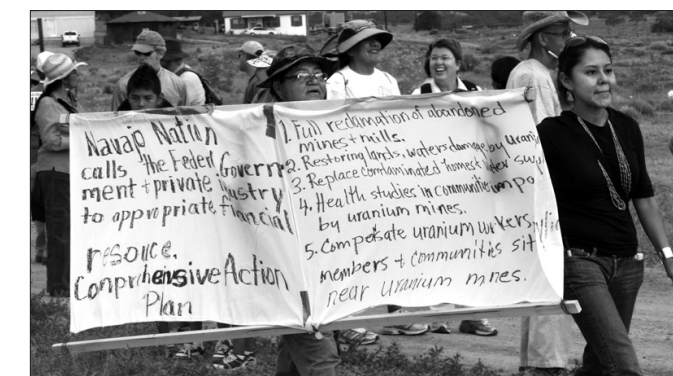 Navajo Nation
calls the Federl Govern
ment + private
to appropriate financial
resouce.
Comprehensive Action
Plan
1. Full reclamation of abandoned
mines + mills.
2. Restoring lands, waters damage by
3. Replace contaminated homes +
4. Health studies in communities
by uranium mines.
5. Compesate uranium workers
members + communities sit
near Uranium mines.